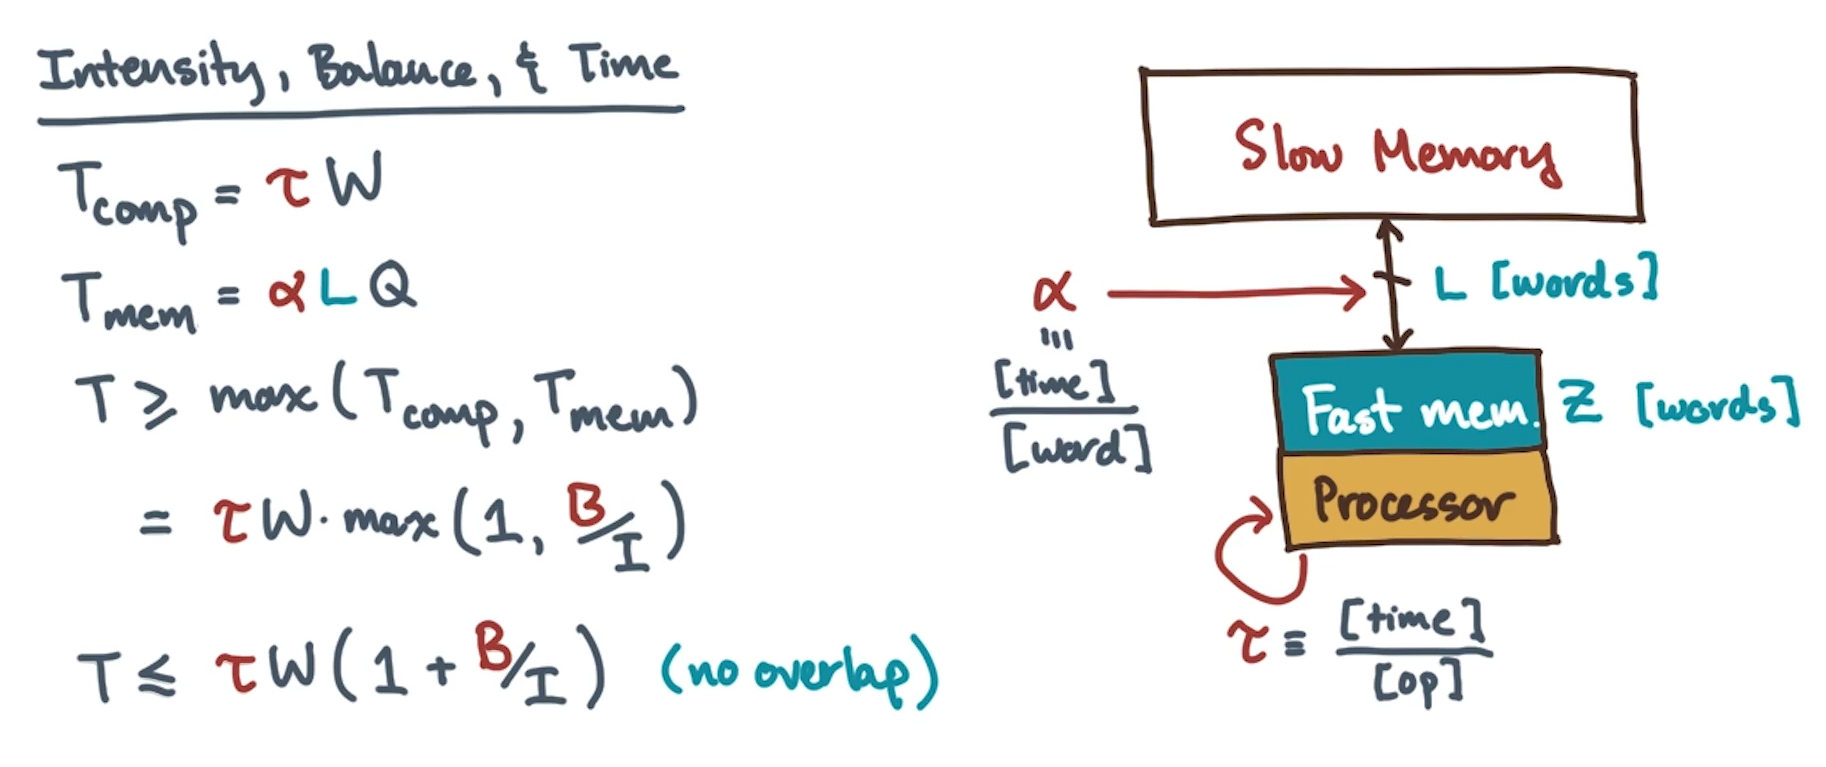 Intensity, Balance, & Time
T_comp = τ W
T_mem = α L Q
T ≥ max(T_comp, T_mem)
= τ W · max(1, B/I)
T ≤ τ W (1 + B/I) (no overlap)
Slow Memory
α
≡
[time]
[word]
L [words]
Fast mem. Z [words]
Processor
τ ≡ [time]
[op]